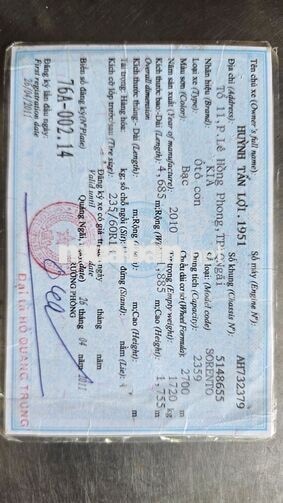 Tên chủ xe (Owner's full name):
HUỲNH TẤN LỢI. 1951
Địa chỉ (Address):
Tổ 11.P.Lê Hồng Phong, TP
Nhãn hiệu (Brand): KIA Số loại (Model code) SORENTO
Loại xe (Type): Ôtô con Dung tích (Capacity): 2359
Màu sơn (Color): Bạc (Wheel Formula): 2700 m
Năm sản xuất (Year of manufacture): 2010 (Empty weight): 1720 kg
Kích thước bao: Dài (Length): 4.685 m; Rộng 1.885 m; Cao (Height): 1,755 m
Overall dimension
Kích thước thùng: Dài (Length): m; Rộng m; Cao (Height): m
Tải trọng: Hàng hóa: kg, số chỗ ngồi (Sit) đứng (Stand): nằm (Lie):
Kích cỡ lốp trước/sau (Tire size): 235/60R
Đăng ký xe có giá trị đến ngày tháng năm
Valid until date
Quảng Ngãi, ngày 26 tháng 04 năm 2011
Số máy (Engine N°): AH732379
Số khung (Chassis N°): 5148655
Biển số đăng ký (N°Plate)
76A-002.14
TRƯỞNG PHÒNG
Đăng ký lần đầu ngày:
First registration date
26/04/2011
Đại tá HỒ QUANG TRUNG